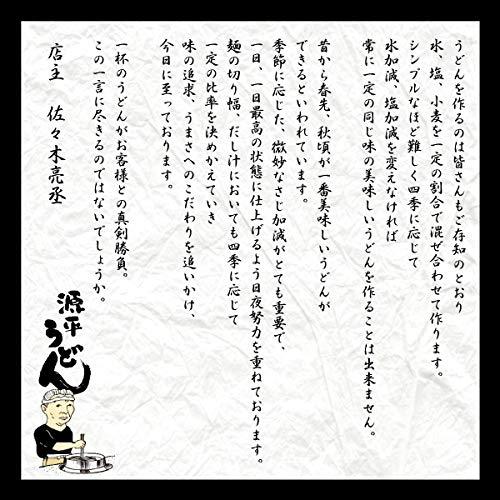 うどんを作るのは皆さんもご存知のとおり
水、塩、小麦を一定の割合で混ぜ合わせて作ります。
シンプルなほど難しく四季に応じて
水加減、塩加減を変えなければ
常に一定の同じ味の美味しいうどんを作ることは出来ません。
昔から春先、秋頃が一番美味しいうどんが
できるといわれています。
季節に応じた、微妙なさじ加減がとても重要で、
一日、一日最高の状態に仕上げるよう日夜努力を重ねております。
麺の切り幅、だし汁においても四季に応じて
一定の比率を決めかえていき
味の追求、うまさへのこだわりを追いかけ、
今日に至っております。
一杯のうどんがお客様との真剣勝負。
この一言に尽きるのではないでしょうか。
店主 佐々木亮丞
源平
うどん